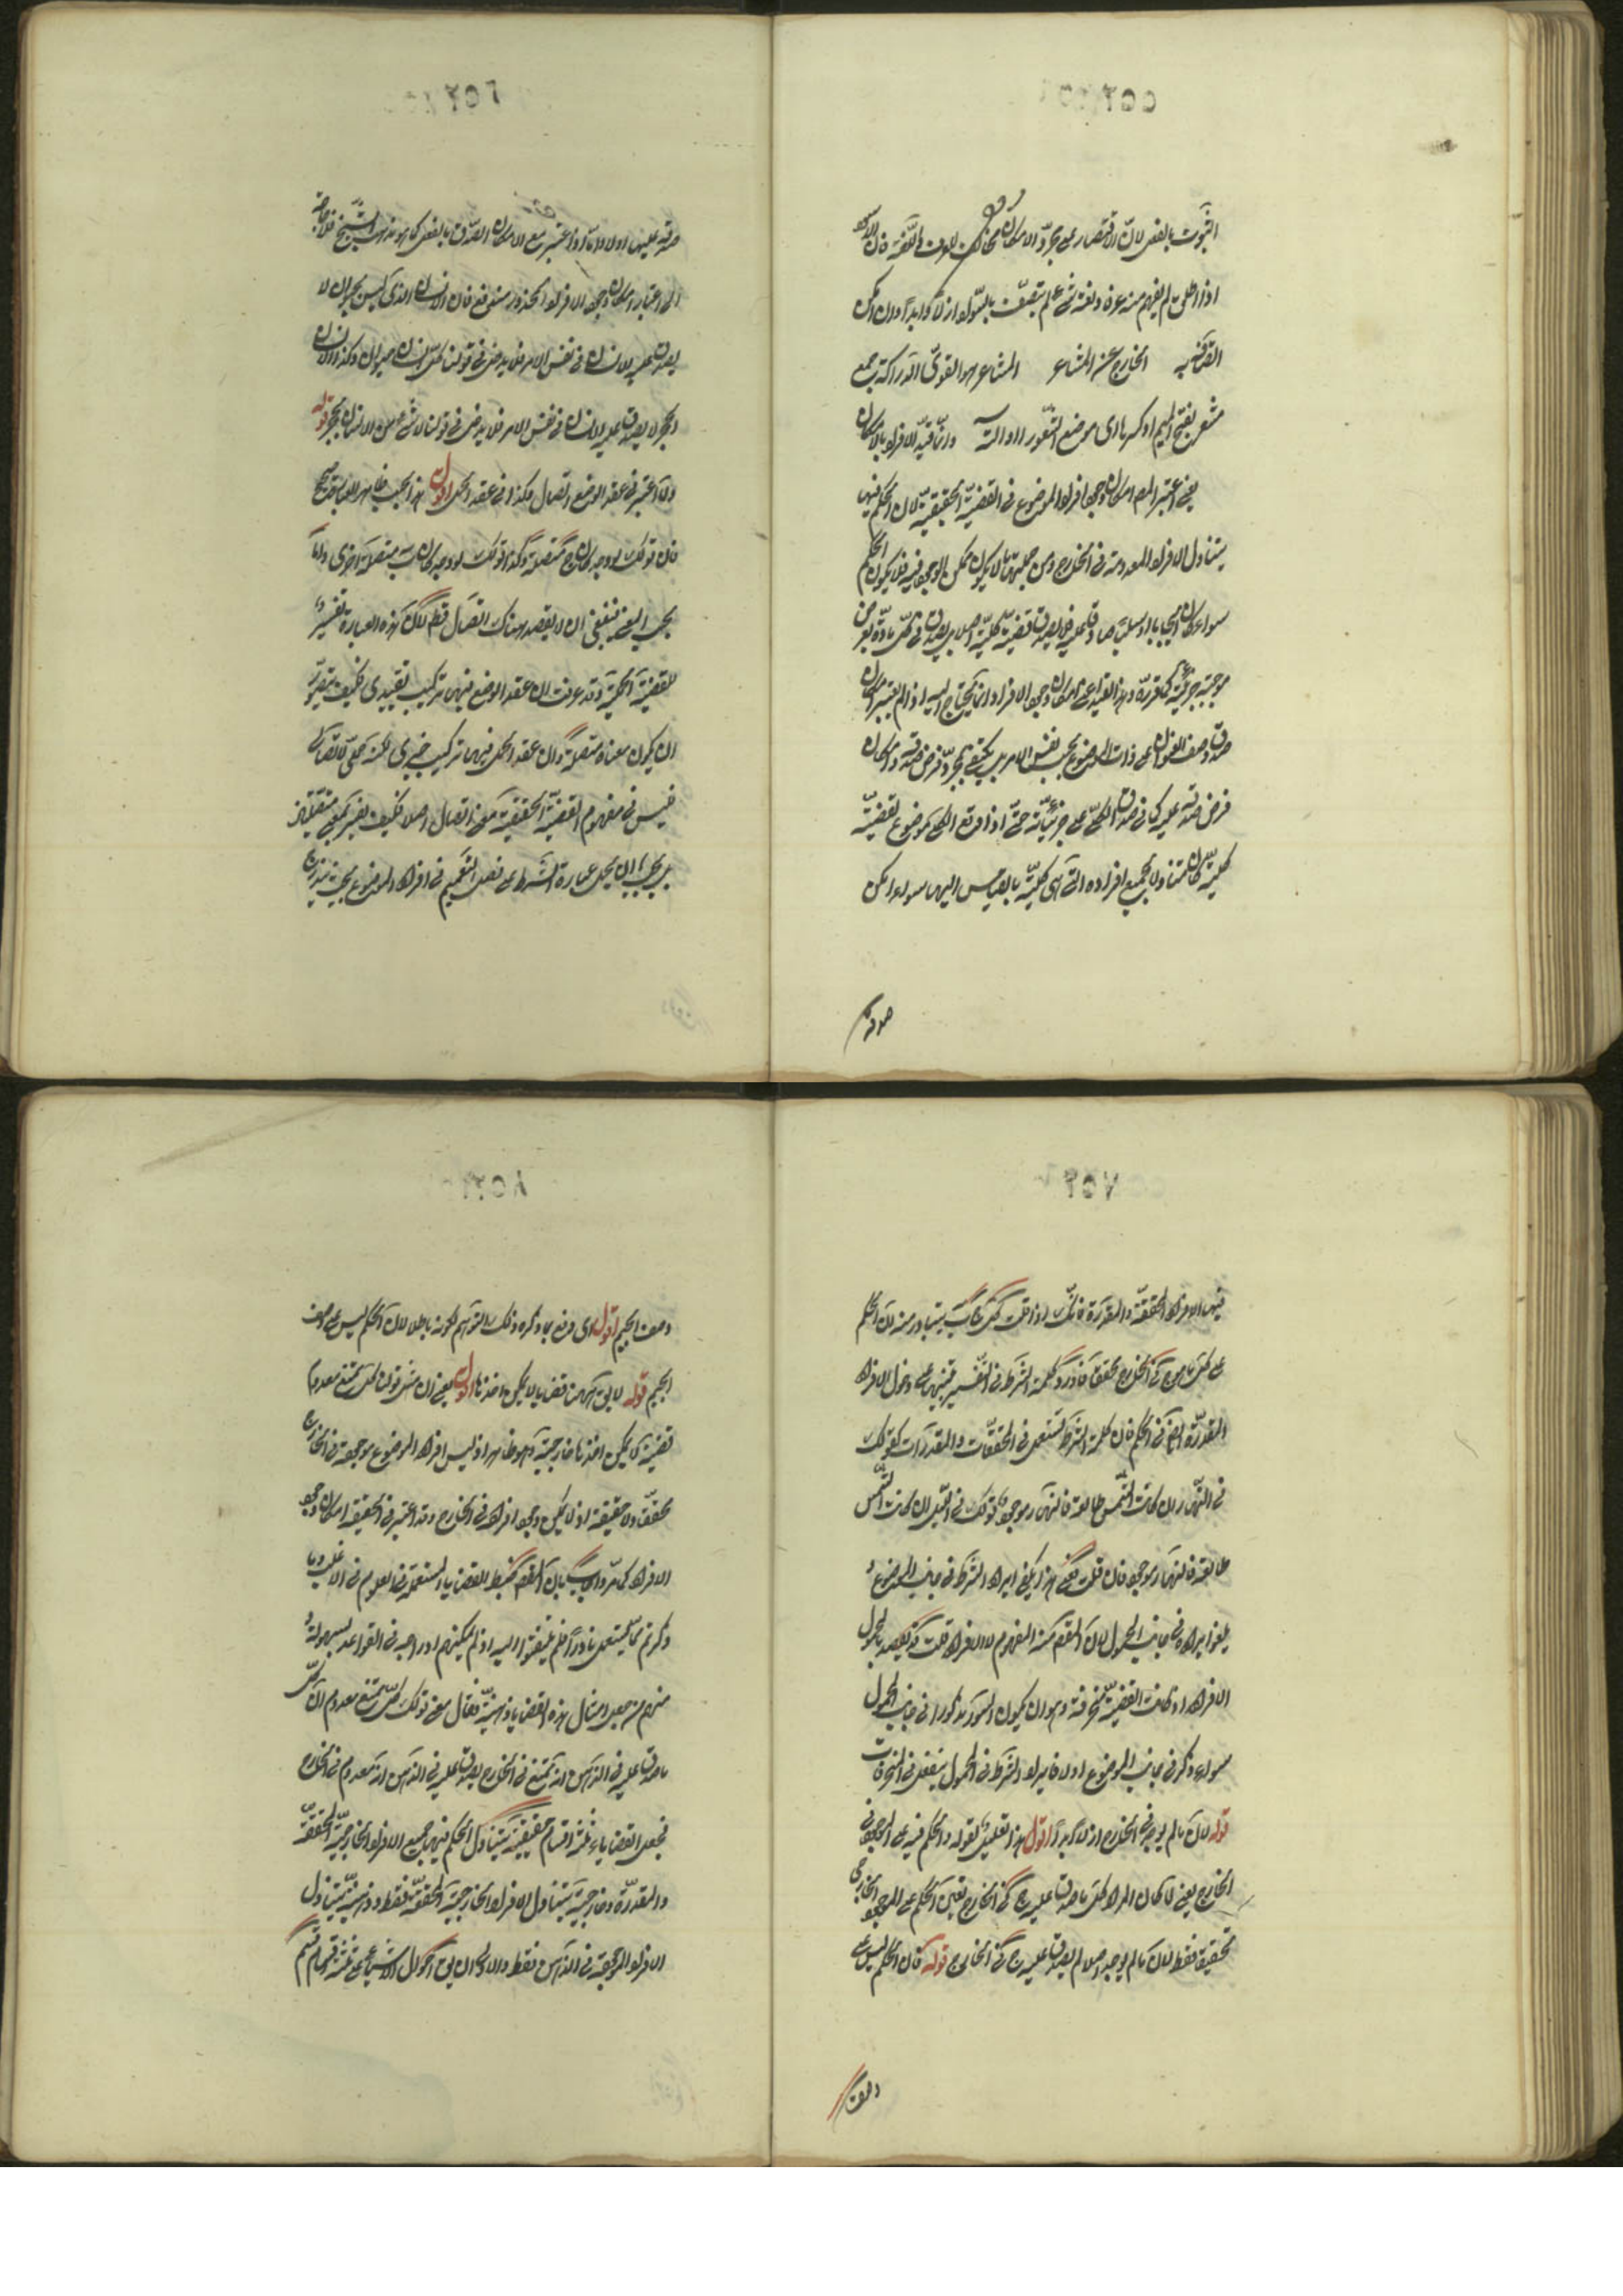 الثبوت بالفعل لان الاقتصار على مجرد الامكان مخالف للعرف واللغة فان الاسود
اذا اطلق لم يفهم منه عرفا ولغة شئ لم يتصف بالسواد ازلا وابدا وان امكن
اتصافه به الخارج عن المشاعر المشاعر هو القوى الدراكة جمع
مشعر بفتح الميم او كسرها اى موضع الشعور او آلته وانما قيد الافراد بالامكان
يعنى اعتبر المص امكان وجود افراد الموضوع فى القضية الحقيقية لان الحكم فيها
يتناول الافراد المعدومة فى الخارج ومن جملتها ما لا يكون ممكن الوجود فيه فلا يكون الحكم
سواء كان ايجابا او سلبا صادقا عليه فلا يصدق قضية كلية اصلا بل يصدق فى كل مادة
موجبة جزئية كما قرره وهذا القيد اعنى امكان وجود الافراد انما يحتاج اليه اذا لم يعتبر امكان
صدق وصف العنوان على ذات الموضوع بحسب نفس الامر بل يكتفى بمجرد فرض صدقه وامكان
فرض صدقه عليه كما فى صدق الكلى على جزئياته حتى اذا وقع الكلى موضوع القضية
كلية كان متناولا لجميع افراده التى هى كلية بالقياس اليها سواء امكن
صدقه
صدقه عليها اولا واما اذا اعتبر مع الامكان الصدق بالفعل كما هو مذهب الشيخ فلا حاجة
الى اعتبار امكان وجود الافراد المحذور مندفع فان الانسان الذى ليس بحيوان لا
يصدق عليه الانسان فى نفس الامر فلا يدخل فى قولنا كل انسان حيوان وكذا الانسان
الحجر لا يصدق عليه الانسان فى نفس الامر فلا يدخل فى قولنا لا شئ من الانسان بحجر قوله
ولما اعتبر فى عقد الوضع اتصال فكذا فى عقد الحمل اقول هذا بحسب ظاهر العبارة صحيح
فان قولك لو وجد كان ج متصلة وكذا قولك لو وجد كان ب متصلة اخرى واما
بحسب المعنى فينبغى ان لا يقصد هناك اتصال قطعا لان هذه العبارة تفسير
للقضية الحملية وقد عرفت ان عقد الوضع فيها تركيب تقييدى فكيف يتصور
ان يكون معناه متصلة وان عقد الحمل فيها تركيب خبرى لكنه حملى لا اتصالى
فليس فى مفهوم القضية الحقيقية معنى اتصال اصلا فكيف يفسر بمعنى متصلتين
بل يجب ان يحمل عبارة الشرط على قصد التعميم فى افراد الموضوع بحيث يندرج
فيها الافراد المحققة والمقدرة فانك اذا قلت كل ج ب يتبادر منه ان الحكم
على كل ما هو ج فى الخارج محققا فاورد كلمة الشرط فى التفسير تنبيها على دخول الافراد
المقدرة ايضا فى الحكم فان كلمة الشرط تستعمل فى المحققات والمقدرات كقولك
فى النهار ان كانت الشمس طالعة فالنهار موجود وقولك فى الليل ان كانت الشمس
طالعة فالنهار موجود فان قلت فعلى هذا يكفى ايراد الشرط فى جانب الموضوع و
يلغو ايراده فى جانب المحمول لان المقصود منه المفهوم لا الافراد قلت قد يقصد بالمحمول
الافراد اذا كانت القضية منحرفة وهو ان يكون السور مذكورا فى جانب المحمول
سواء ذكر فى جانب الموضوع اولا فايراد الشرط فى المحمول ينفعك فى المنحرفات
قوله لان ما لم يوجد فى الخارج ازلا وابدا اقول هذا تعليل لقوله والحكم فيه على الموجود فى
الخارج يعنى لما كان المراد كل ما صدق عليه ج فى الخارج تعين الحكم على الموجود الخارجى
تحقيقا فقط لان ما لم يوجد اصلا لم يصدق عليه ج فى الخارج قوله فان الحكم ليس على
وصف
وصف الجيم اقول اى دفع بما ذكره ذلك التوهم لكونه باطلا لان الحكم ليس على وصف
الجيم قوله لا يقال ههنا قضايا لا يمكن اخذها اقول يعنى ان مثل قولنا كل ممتنع معدوم
قضية لا يمكن اخذها خارجية وهو ظاهر اذ ليس افراد الموضوع موجودة فى الخارج
محققا ولا حقيقية اذ لا يمكن وجود افراده فى الخارج وقد اعتبر فى الحقيقية امكان وجود
الافراد كما مر واجاب بان المقصود ضبط القضايا المستعملة فى العلوم فى الاغلب وما
ذكرتم مما يستعمل نادرا فلم يلتفتوا اليه اذ لم يمكنهم ادراجه فى القواعد بسهولة و
منهم من جعل امثال هذه القضايا ذهنية فقال معنى قولك كل ممتنع معدوم ان كل
ما صدق عليه فى الذهن انه ممتنع فى الخارج يصدق عليه فى الذهن انه معدوم فى الخارج
فجعل القضايا ثلثة اقسام حقيقية يتناول الحكم فيها جميع الافراد الخارجية المحققة
والمقدرة وخارجية يتناول الافراد الخارجية المحققة فقط وذهنية يتناول
الافراد الموجودة فى الذهن فقط والاولى ان يقال احوال الاشياء على ثلثة اقسام قسم